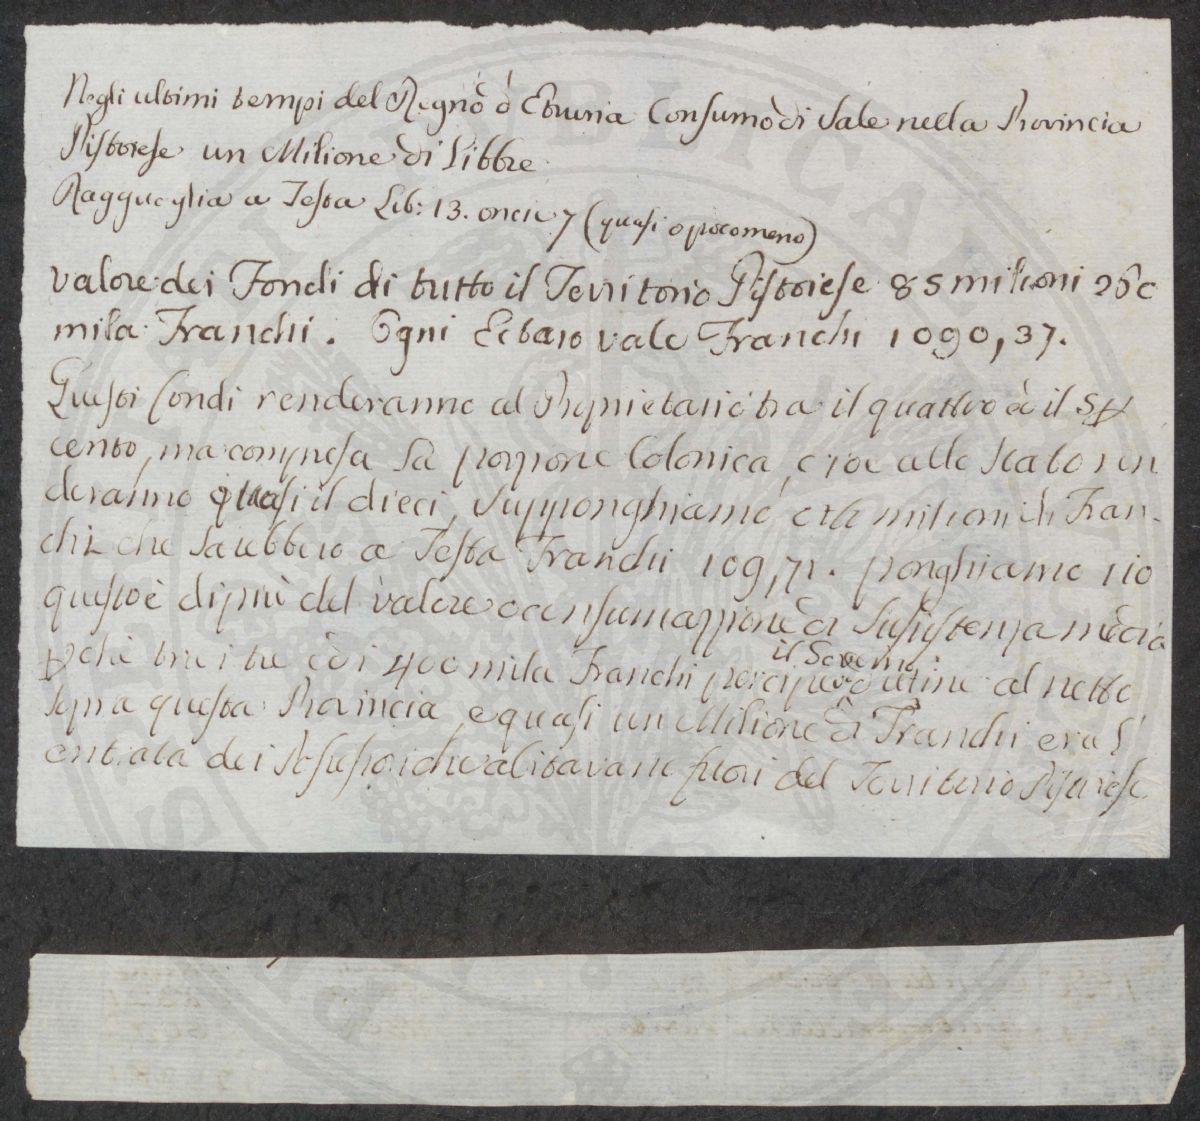 Negli ultimi tempi del Regno d'Etruria Consumo di Sale nella Provincia
Pistoiese un Milione di Libbre
Ragguaglia a Testa Lib: 13. oncie 7 (quasi o poco meno)
Valore dei Fondi di tutto il Territorio Pistoiese 85 milioni 260
mila Franchi. Ogni Ectaro vale Franchi 1090,37.
Questi fondi renderanno al Proprietario tra il quattro e il 5 p
cento, ma compresa la porzione Colonica, cioè allo Stato ren
deranno quasi il dieci, Supponghiamo otto milioni di Fran-
chi che sarebbero a Testa Franchi 109,71. ponghiamo 110
questo è di più del valore consumazione di Susistenza media
p che tra i tre e i 400 mila Franchi il Governo al netto
sopra questa Provincia, e quasi un Milione di Franchi era l'
entrata dei Possessori che abitavano fuori del Territorio Pistoiese